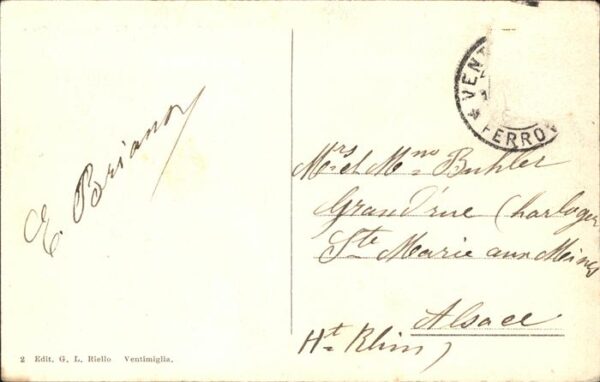 VENT
FERROV
E. Boriano
Mrs et Mme Buhler
Grand'rue (horloger
Ste Marie aux Mines
Alsace
Ht Rhin)
2 Edit. G. L. Riello Ventimiglia.